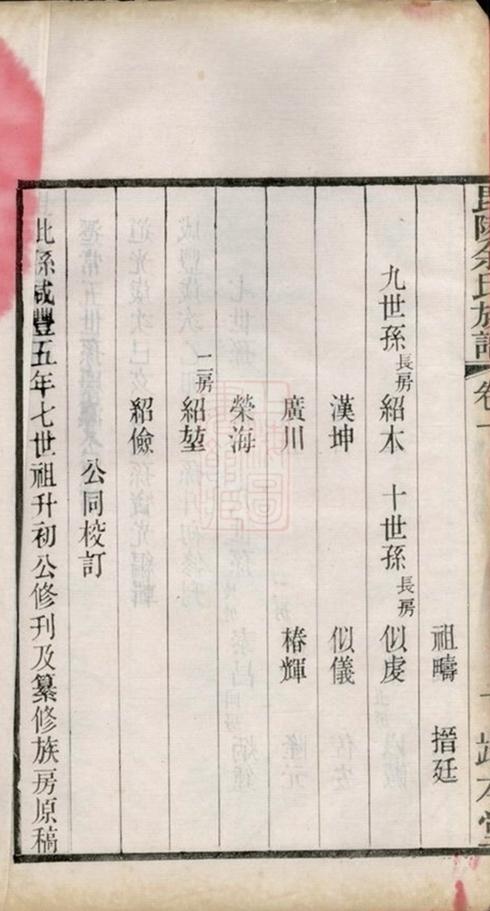 毘陵余氏族譜 卷一
祖疇 搢廷
九世孫 長房 紹本 十世孫 長房 似虔
漢坤 似儀
廣川 椿輝
榮海
二房 紹堃
紹儉
公同校訂
此係咸豐五年七世祖升初公修刊及纂修族房原稿